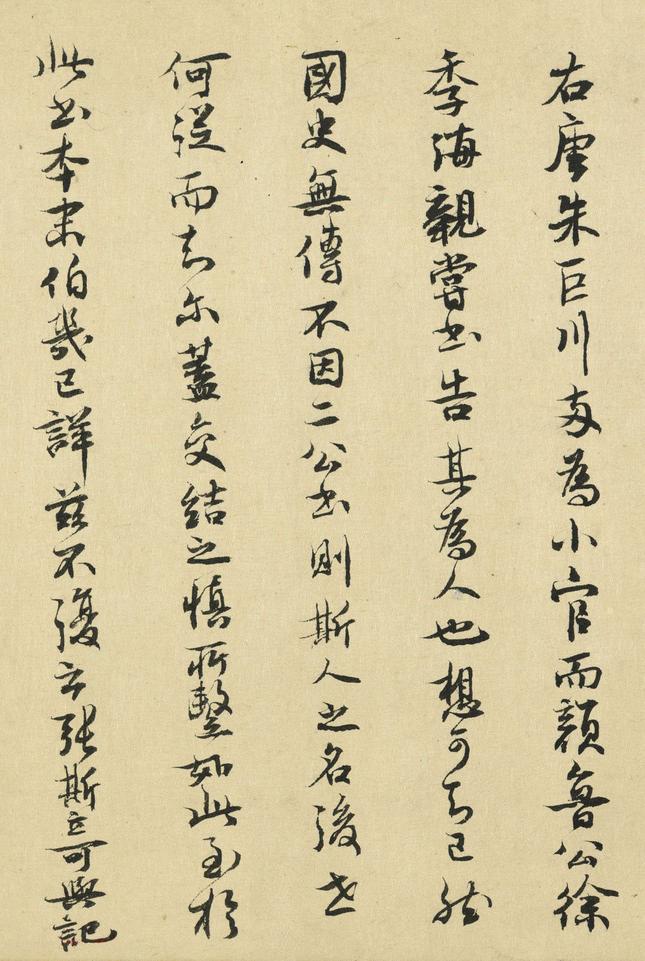 右唐朱巨川為小官而顏魯公徐
季海親嘗書告其為人也想可知已然
國史無傳不因二公書則斯人之名後世
何從而知尔蓋交結之慎所繫如此至於
此書本末伯幾已詳茲不復云張斯立可與記